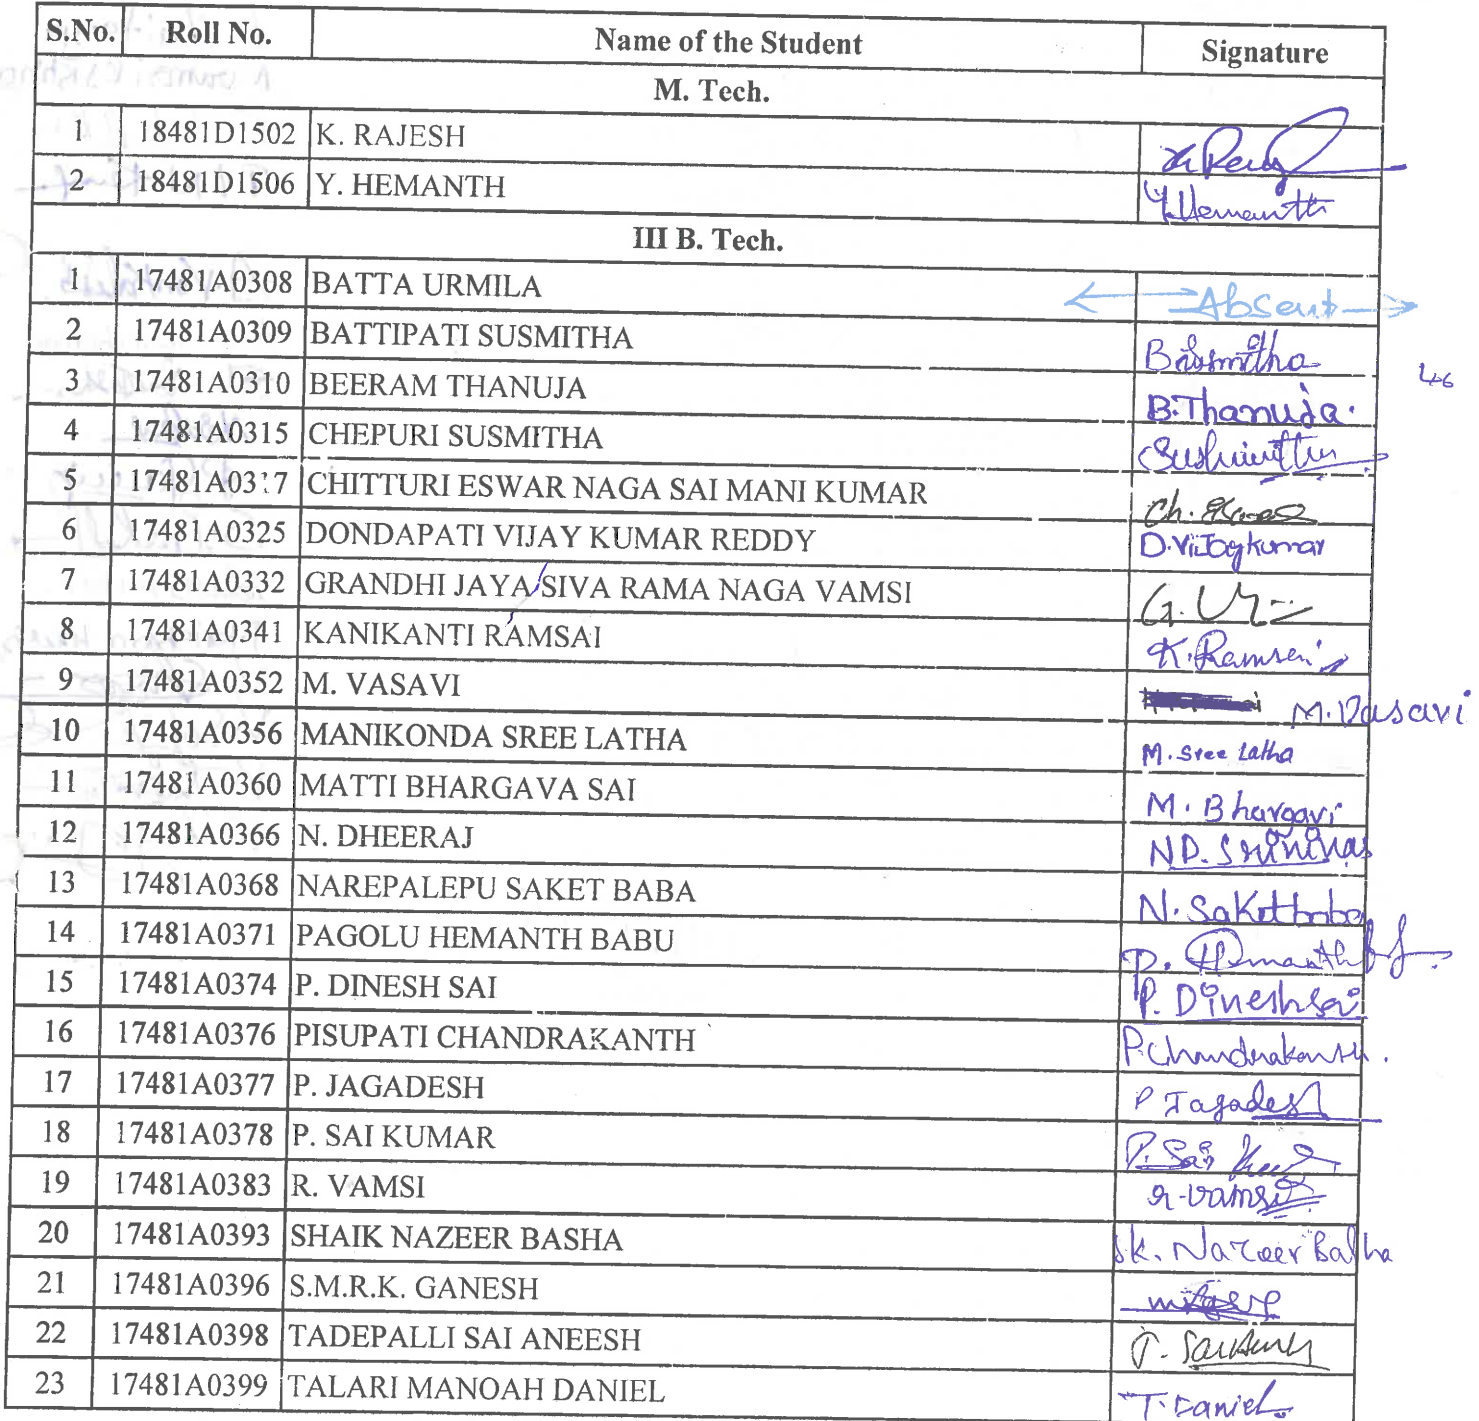 S.No. Roll No. Name of the Student Signature
M. Tech.
1 18481D1502 K. RAJESH
2 18481D1506 Y. HEMANTH Y.Hemanth
III B. Tech.
1 17481A0308 BATTA URMILA Absent
2 17481A0309 BATTIPATI SUSMITHA B.Susmitha
46
3 17481A0310 BEERAM THANUJA B.Thanuja.
4 17481A0315 CHEPURI SUSMITHA
5 17481A0317 CHITTURI ESWAR NAGA SAI MANI KUMAR Ch.
6 17481A0325 DONDAPATI VIJAY KUMAR REDDY D.Vijaykumar
7 17481A0332 GRANDHI JAYA/SIVA RAMA NAGA VAMSI G.
8 17481A0341 KANIKANTI RAMSAI K.Ramsai
9 17481A0352 M. VASAVI M.Vasavi
10 17481A0356 MANIKONDA SREE LATHA M. Sree Latha
11 17481A0360 MATTI BHARGAVA SAI M. Bhargavi
12 17481A0366 N. DHEERAJ ND. Srininvas
13 17481A0368 NAREPALEPU SAKET BABA N. Saketbaba
14 17481A0371 PAGOLU HEMANTH BABU P. Hemanth
15 17481A0374 P. DINESH SAI P. Dineshsai
16 17481A0376 PISUPATI CHANDRAKANTH P.Chandrakanth.
17 17481A0377 P. JAGADESH P Jagadesh
18 17481A0378 P. SAI KUMAR P. Sai
19 17481A0383 R. VAMSI R-Vamsi
20 17481A0393 SHAIK NAZEER BASHA Sk. Nazeer Basha
21 17481A0396 S.M.R.K. GANESH
22 17481A0398 TADEPALLI SAI ANEESH T.
23 17481A0399 TALARI MANOAH DANIEL T. Daniel